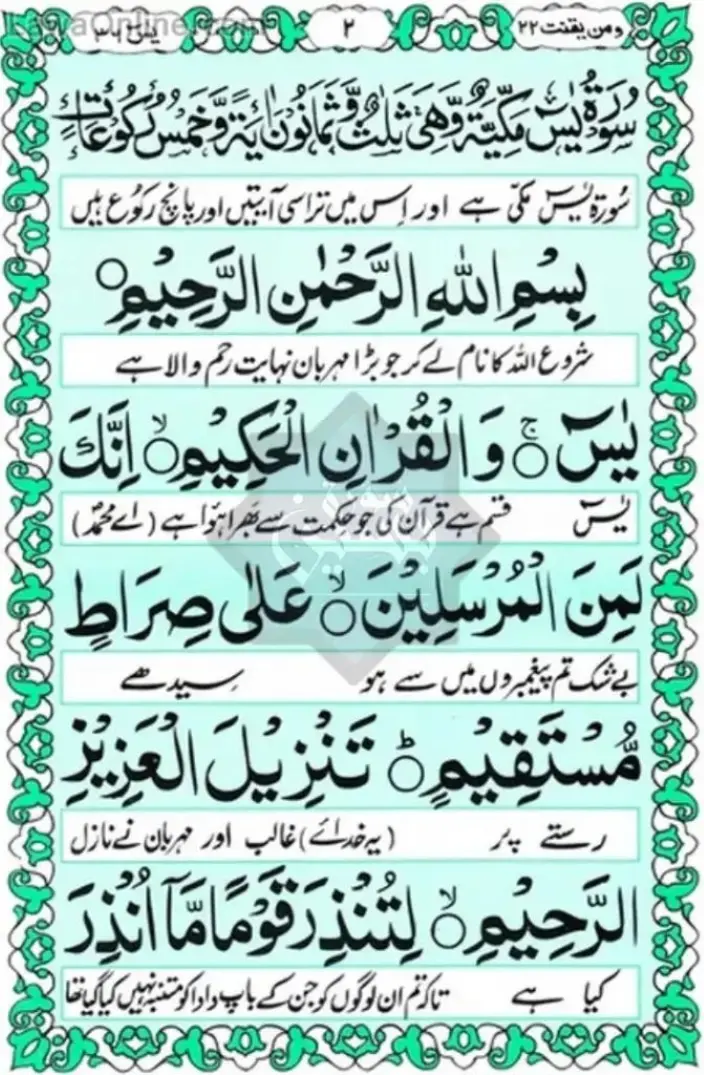 ومن یقنت ۲۲
۲
یٰسٓ ۳۶
سُوْرَةُ یٰسٓ مَکِّیَّةٌ وَّهِیَ ثَلٰثٌ وَّثَمَانُوْنَ اٰیَةً وَّخَمْسُ رُکُوْعَاتٍ
سُورۃ یٰسٓ مکّی ہے اور اِس میں تراسی آیتیں اور پانچ رکوع ہیں
بِسْمِ اللّٰهِ الرَّحْمٰنِ الرَّحِیْمِ ○
شروع اللہ کا نام لے کر جو بڑا مہربان نہایت رحم والا ہے
یٰسٓ ○ۚ وَالْقُرْاٰنِ الْحَکِیْمِ ○ۙ اِنَّكَ
یٰسٓ قسم ہے قرآن کی جو حکمت سے بھرا ہُوا ہے (اے محمدؐ)
لَمِنَ الْمُرْسَلِیْنَ ○ۙ عَلٰی صِرَاطٍ
بے شک تم پیغمبروں میں سے ہو سیدھے
مُّسْتَقِیْمٍ ○ؕ تَنْزِیْلَ الْعَزِیْزِ
رستے پر (یہ خدائے) غالب اور مہربان نے نازل
الرَّحِیْمِ ○ۙ لِتُنْذِرَ قَوْمًا مَّاۤ اُنْذِرَ
کیا ہے تاکہ تم ان لوگوں کو جن کے باپ دادا کو متنبہ نہیں کیا گیا تھا